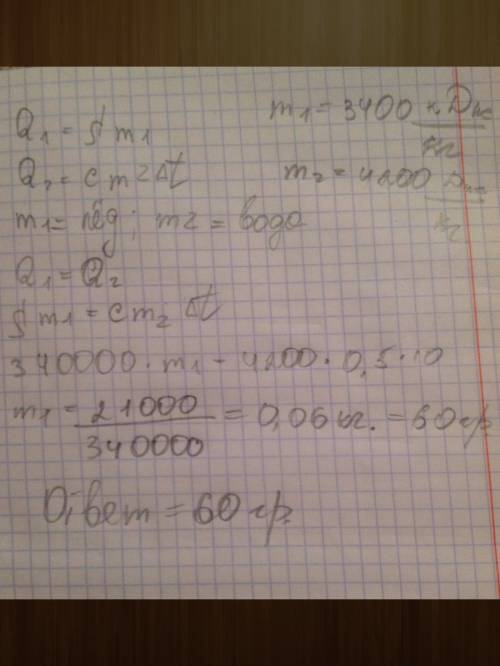 Q₁ = λ m₁
m₁ = 3400 кДж/кг
Q₂ = c m₂ Δt
m₂ = 4200 Дж/кг
m₁ = лёд; m₂ = вода
Q₁ = Q₂
λ m₁ = c m₂ Δt
340000 · m₁ = 4200 · 0,5 · 10
m₁ = 21000/340000 = 0,06 кг. = 60 гр
Ответ = 60 гр.